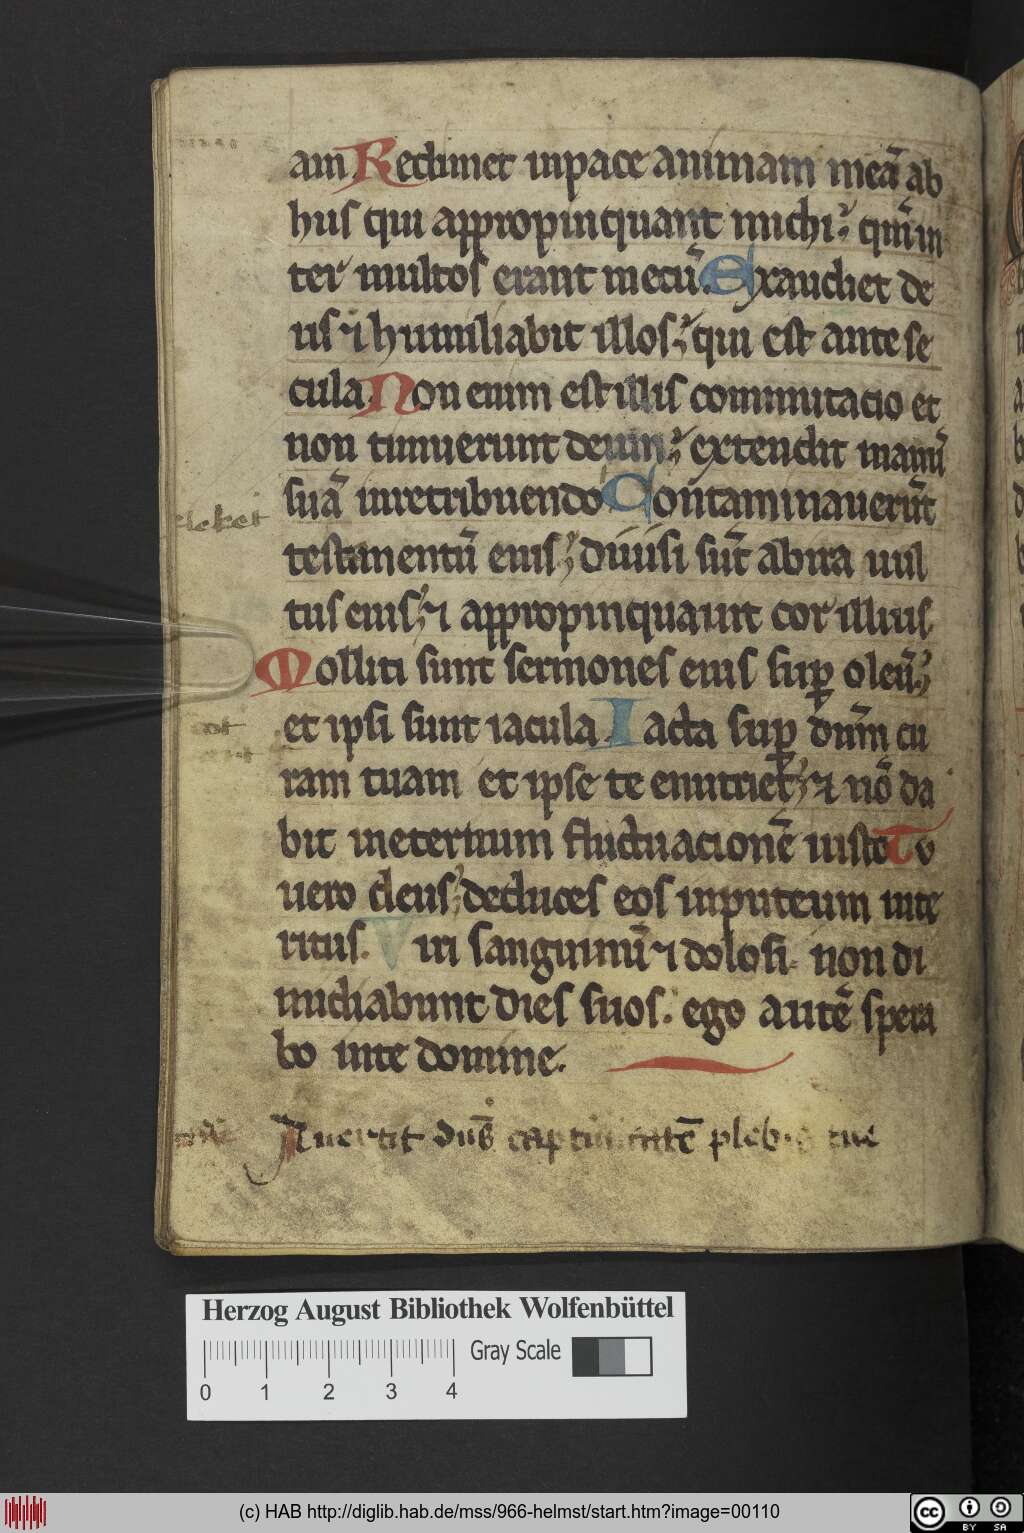 am Redimet in pace animam meā ab
hiis qui appropinquant michi qm̄ in
ter multos erant mecū Exaudiet de
us ⁊ humiliabit illos qui est ante se
cula Non enim est illis commutacio et
non timuerunt deum extendit manū
suā in retribuendo Contaminauerūt
eleket
testamentū eius diuisi sūt ab ira uul
tus eius ⁊ appropinquauit cor illius
Molliti sunt sermones eius sup̄ oleū
et ipsi sunt iacula Iacta sup̄ dn̄m cu
ram tuam et ipse te enutriet ⁊ nō da
bit in eternum fluctuacionē iusto Tu
uero deus deduces eos in puteum inte
ritus. Viri sanguinū ⁊ dolosi non di
midiabunt dies suos. ego autē spera
bo in te domine.
Auertit dn̄s captiuitatē plebis tue
Herzog August Bibliothek Wolfenbüttel
0 1 2 3 4 Gray Scale
(c) HAB http://diglib.hab.de/mss/966-helmst/start.htm?image=00110
cc BY SA